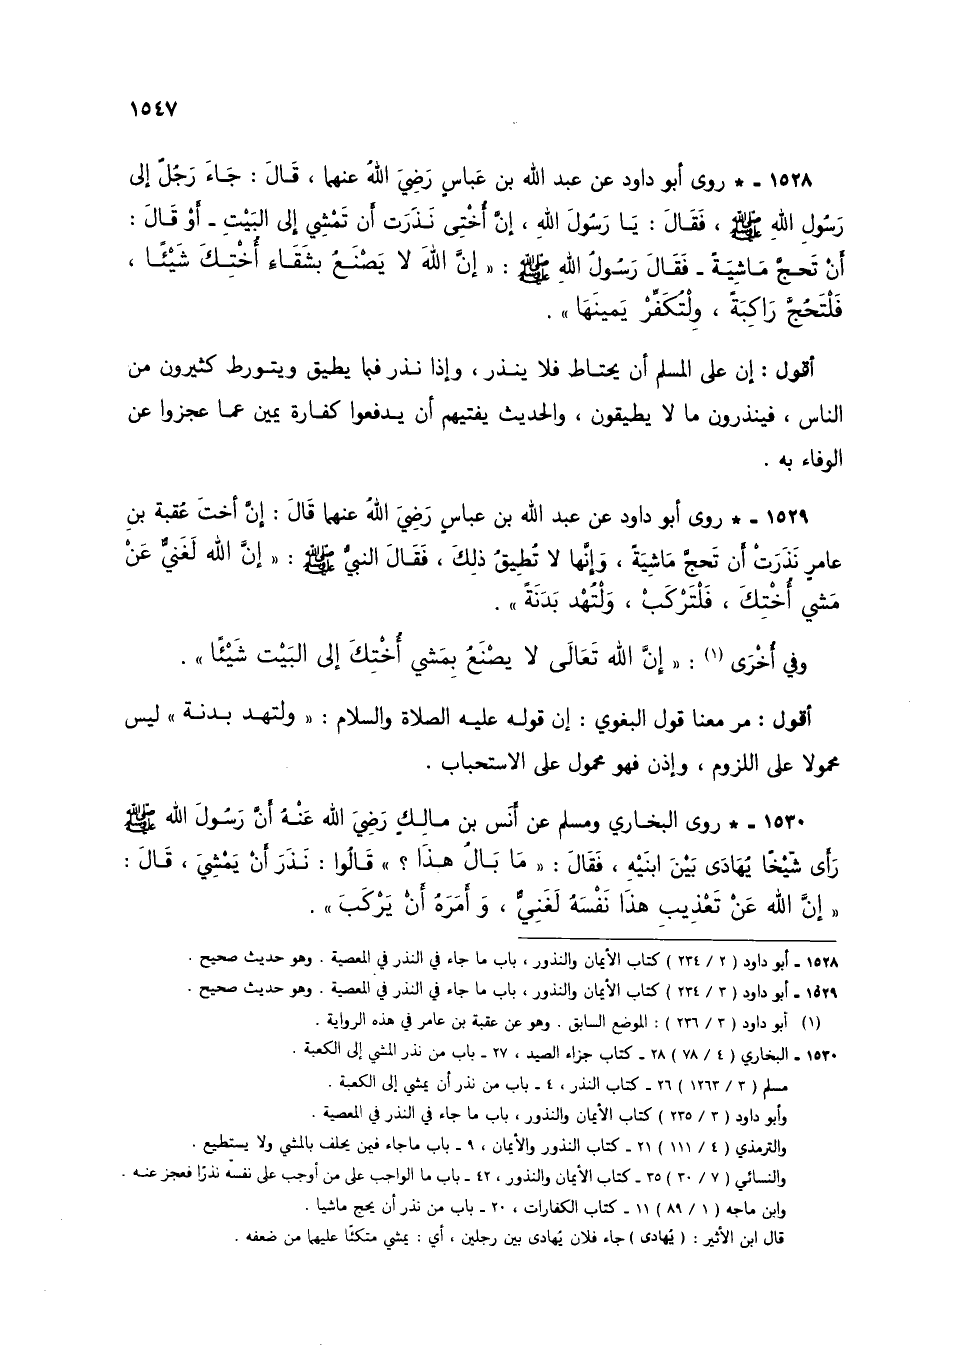 ١٥٤٧
١٥٢٨ - * روى أبو داود عن عبد الله بن عَباسٍ رَضِيَ اللهُ عنهما ، قَـالَ : جَـاءَ رَجُلٌ إلى
رَسُولِ اللهِ ﷺ ، فَقَـالَ : يَـا رَسُولَ اللهِ ، إنَّ أُخْتِى نَـذَرَت أن تَمْشِي إلى البَيْتِ - أوْ قَـالَ :
أنْ تَحـجَّ مَـاشِيَـةً - فَقَـالَ رَسُـولُ اللهِ ﷺ : « إنَّ اللهَ لا يَصْنَـعُ بشَقَـاءِ أُخْتِـكَ شَيْئًـا ،
فَلْتَحُجَّ رَاكِبَةً ، ولْتُكَفِّرْ يَمِينَهَا » .
أقول : إن على المسلم أن يحتـاط فلا ينـذر ، وإذا نـذر فبما يطيق ويتـورط كثيرون من
الناس ، فينذرون ما لا يطيقون ، والحديث يفتيهم أن يـدفعوا كفـارة يمين عمـا عجزوا عن
الوفاء به .
١٥٢٩ - * روى أبو داود عن عبد الله بن عباسٍ رَضِيَ اللهُ عنهما قَالَ : إنَّ أختَ عُقبة بنِ
عامرٍ نَذَرَتْ أن تَحجَّ مَاشِيَةً ، وَإنَّها لا تُطِيقُ ذلِكَ ، فَقَـالَ النبيُّ ﷺ : « إنَّ الله لَغَنيٌّ عَنْ
مَشي أُخْتِكَ ، فَلْتَرْكَبْ ، وَلْتُهْدِ بَدَنَةً » .
وفي أُخْرَى (١) : « إنَّ الله تَعَالَى لا يصْنَعُ بِمَشي أُخْتِكَ إلى البَيْت شَيْئًا » .
أقول : مر معنا قول البغوي : إن قولـه عليـه الصلاة والسلام : « ولتهـد بـدنـة » ليس
محمولا على اللزوم ، وإذن فهو محمول على الاستحباب .
١٥٣٠ - * روى البخـاري ومسلم عن أنَس بن مـالِـكٍ رَضِيَ الله عَنْـهُ أنَّ رَسُـولَ الله ﷺ
رَأى شَيْخًا يُهَادَى بَيْنَ ابنَيْهِ ، فَقَالَ : « مَا بَـالُ هـذَا ؟ » قَـالُوا : نَـذَرَ أنْ يَمْشِيَ ، قَـالَ :
« إنَّ الله عَنْ تَعْذِيبِ هذَا نَفْسَهُ لَغَنيٌّ ، وَ أمَرَهُ أنْ يَرْكَبَ » .
١٥٢٨ - أبو داود ( ٢ / ٢٣٤ ) كتاب الأيمان والنذور ، باب ما جاء في النذر في المعصية . وهو حديث صحيح .
١٥٢٩ - أبو داود ( ٣ / ٢٣٤ ) كتاب الأيمان والنذور ، باب ما جاء في النذر في المعصية . وهو حديث صحيح .
(١) أبو داود ( ٣ / ٢٣٦ ) : الموضع السابق . وهو عن عقبة بن عامر في هذه الرواية .
١٥٣٠ - البخاري ( ٤ / ٧٨ ) ٢٨ - كتاب جزاء الصيد ، ٢٧ - باب من نذر المشي إلى الكعبة .
مسلم ( ٣ / ١٢٦٣ ) ٢٦ - كتاب النذر ، ٤ - باب من نذر أن يمشي إلى الكعبة .
وأبو داود ( ٣ / ٢٣٥ ) كتاب الأيمان والنذور ، باب ما جاء في النذر في المعصية .
والترمذي ( ٤ / ١١١ ) ٢١ - كتاب النذور والأيمان ، ٩ - باب ماجاء فيمن يحلف بالمشي ولا يستطيع .
والنسائي ( ٧ / ٣٠ ) ٣٥ - كتاب الأيمان والنذور ، ٤٢ - باب ما الواجب على من أوجب على نفسه نذرًا فعجز عنـه .
وابن ماجه ( ١ / ٨٩ ) ١١ - كتاب الكفارات ، ٢٠ - باب من نذر أن يحج ماشيا .
قال ابن الأثير : ( يُهادى ) جاء فلان يُهادى بين رجلين ، أي : يمشي متكئًا عليهما من ضعفه .